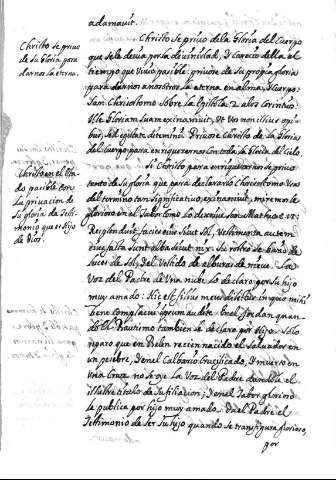 adamavit.
Christo se privo de la Gloria del Cuerpo
que se le devia por la divinidad, y carecio della el
tiempo que vivio pasible: privose de su propia gloria
para darnos a nosotros la eterna en alma, y cuerpo:
San Chrisostomo sobre la Epistola 2. a los Corintios.
Ille Gloriam suam exinanivit, ut vos non illius opi-
bus, sed egestate ditemini. Privose Christo de la Gloria
del cuerpo para enriquecernos con toda la Gloria del cielo.
Christo se privo
de su Gloria para
darnos la eterna.
Si Christo para enriquecernos se privo
tanto de su gloria que para declararlo Chrisostomo usa
del termino tan significativo exinanivit, miremosle
glorioso en el Tabor como lo describe San Matheo c. 17.
Resplenduit facies eius sicut Sol, vestimenta autem
eius facta sunt alba sicut nix. Su rostro se baño de
luces de sol, del vestido de alburas de nieve. La
voz del Padre de una nube lo declaro por su hijo
muy amado: Hic est filius meus dilectus in quo mihi
bene complacui, ipsum audite. En el Jordan quan-
do el Bautismo tambien se declaro por Hijo. Solo
reparo que en Belen recien nacido el Salvador en
un pesebre, y en el Calbario Crucificado, y muerto en
una Cruz no se oye la voz del Padre dandole el
illustre titulo de su filiacion; y en el Tabor glorioso
se publica por hijo muy amado. Da el Padre el
Testimonio de ser su hijo quando se transfigura glorioso,
por
Christo en el Esta-
do pasible con
la privacion de
su gloria da Testi-
monio que es hijo
de Dios.